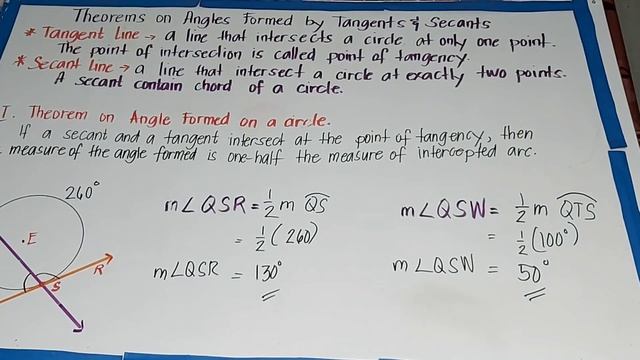 Theorems on Angles Formed by Tangents & Secants
* Tangent Line → a line that intersects a circle at only one point.
The point of intersection is called point of tangency.
* Secant Line → a line that intersect a circle at exactly two points.
A secant contain chord of a circle.
I. Theorem on Angle Formed on a circle.
If a secant and a tangent intersect at the point of tangency, then
measure of the angle formed is one-half the measure of intercepted arc.
260°
.E
R
S
m∠QSR = 1/2 m QS
= 1/2 (260)
m∠QSR = 130°
m∠QSW = 1/2 m QTS
= 1/2 (100°)
m∠QSW = 50°